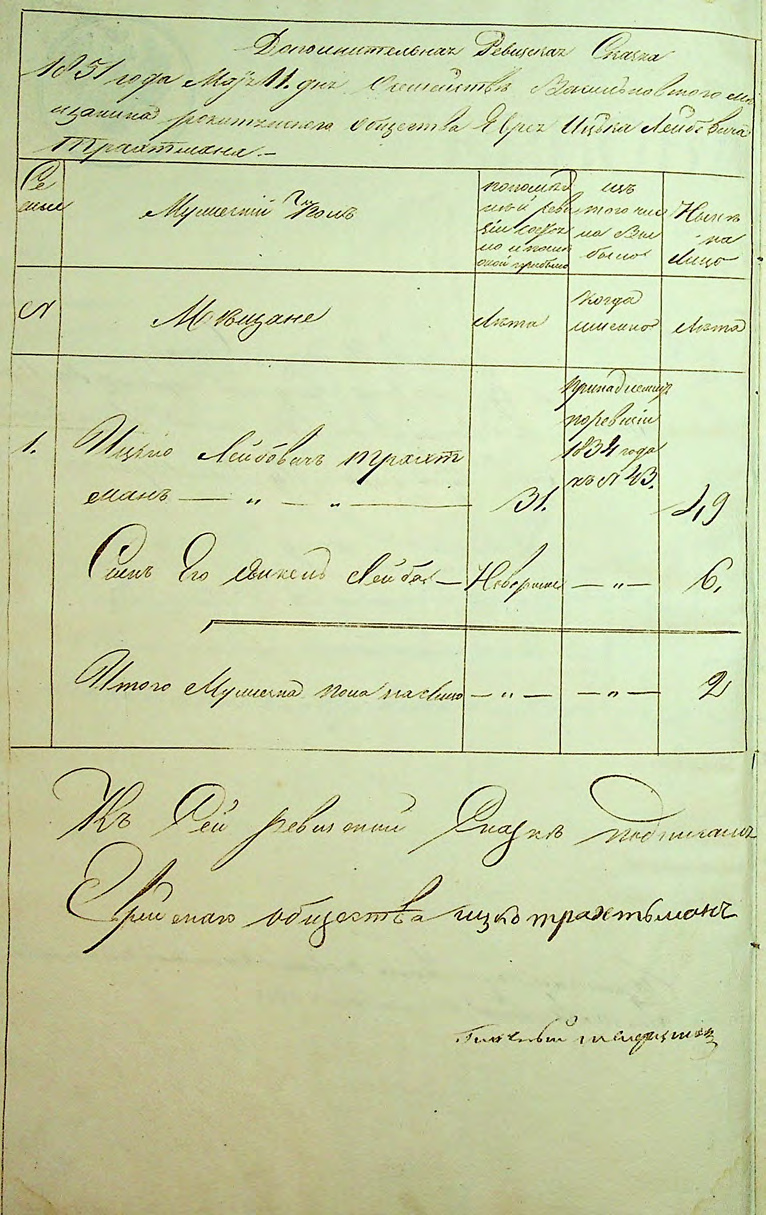 Дополнительная Ревизская Сказка
1851 года Мая 11. дня Семейства Васильковского мѣ
щанина рокитнянского общества Еврея Ицька Лейбовича
Трахтмана.—
Се
мьи
Мужеский Полъ
по послѣд
ней реви
зіи состоя
ло и после
оной прибыло
изъ
того чис
ла Вы
было
Нынѣ
на
Лицо
№
Мѣщане
Лѣта
Когда
именно
Лѣта
1.
Ицько Лейбовичъ Трахт
манъ — „ — „ —
31.
принадлежитъ
по ревизіи
1834 года
къ № 43.
49
Сынъ Его Лейба —
Новорожд
— „ —
6.
Итого Мужеска пола на лицо
— „ —
— „ —
2
Къ Сей ревизской Сказкѣ подписался
Еврейскаго общества ицко трахтьманъ